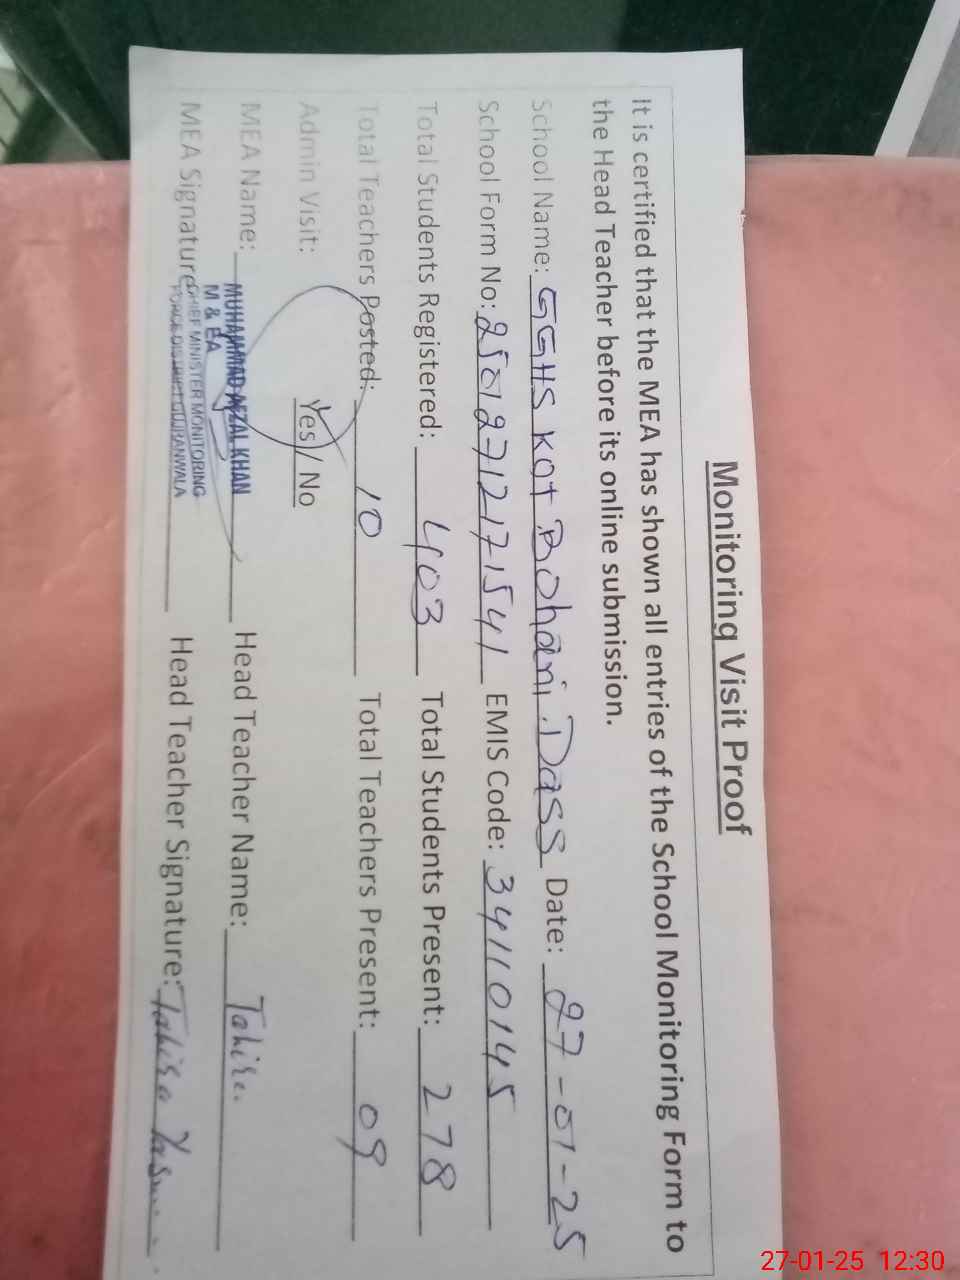 Monitoring Visit Proof
It is certified that the MEA has shown all entries of the School Monitoring Form to
the Head Teacher before its online submission.
School Name: GGHS Kot Bohani Dass Date: 27-01-25
School Form No: 2501271217541 EMIS Code: 34110145
Total Students Registered: 403 Total Students Present: 278
Total Teachers Posted: 10 Total Teachers Present: 09
Admin Visit: Yes / No
MEA Name: MUHAMMAD AFZAL KHAN Head Teacher Name: Tahira
M & EA
MEA Signature: CHIEF MINISTER MONITORING Head Teacher Signature: Tahira
FORCE DISTRICT GUJRANWALA
27-01-25 12:30